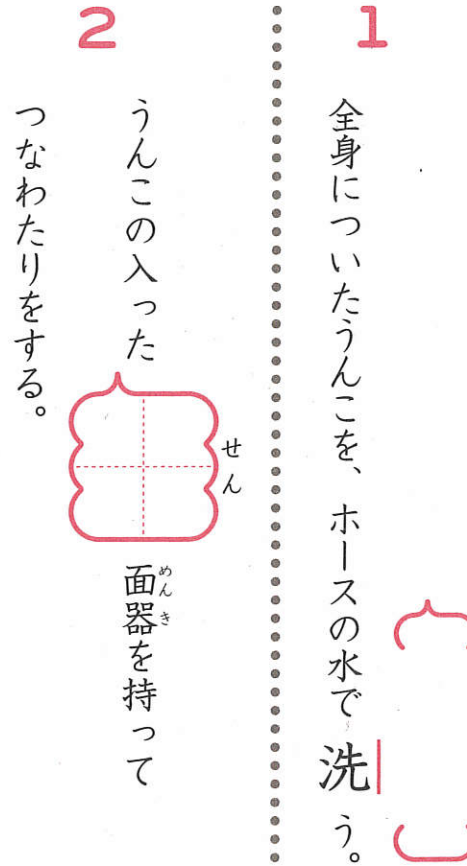 1
全身についたうんこを、ホースの水で洗う。
2
うんこの入ったせん面器を持って
めんき
つなわたりをする。